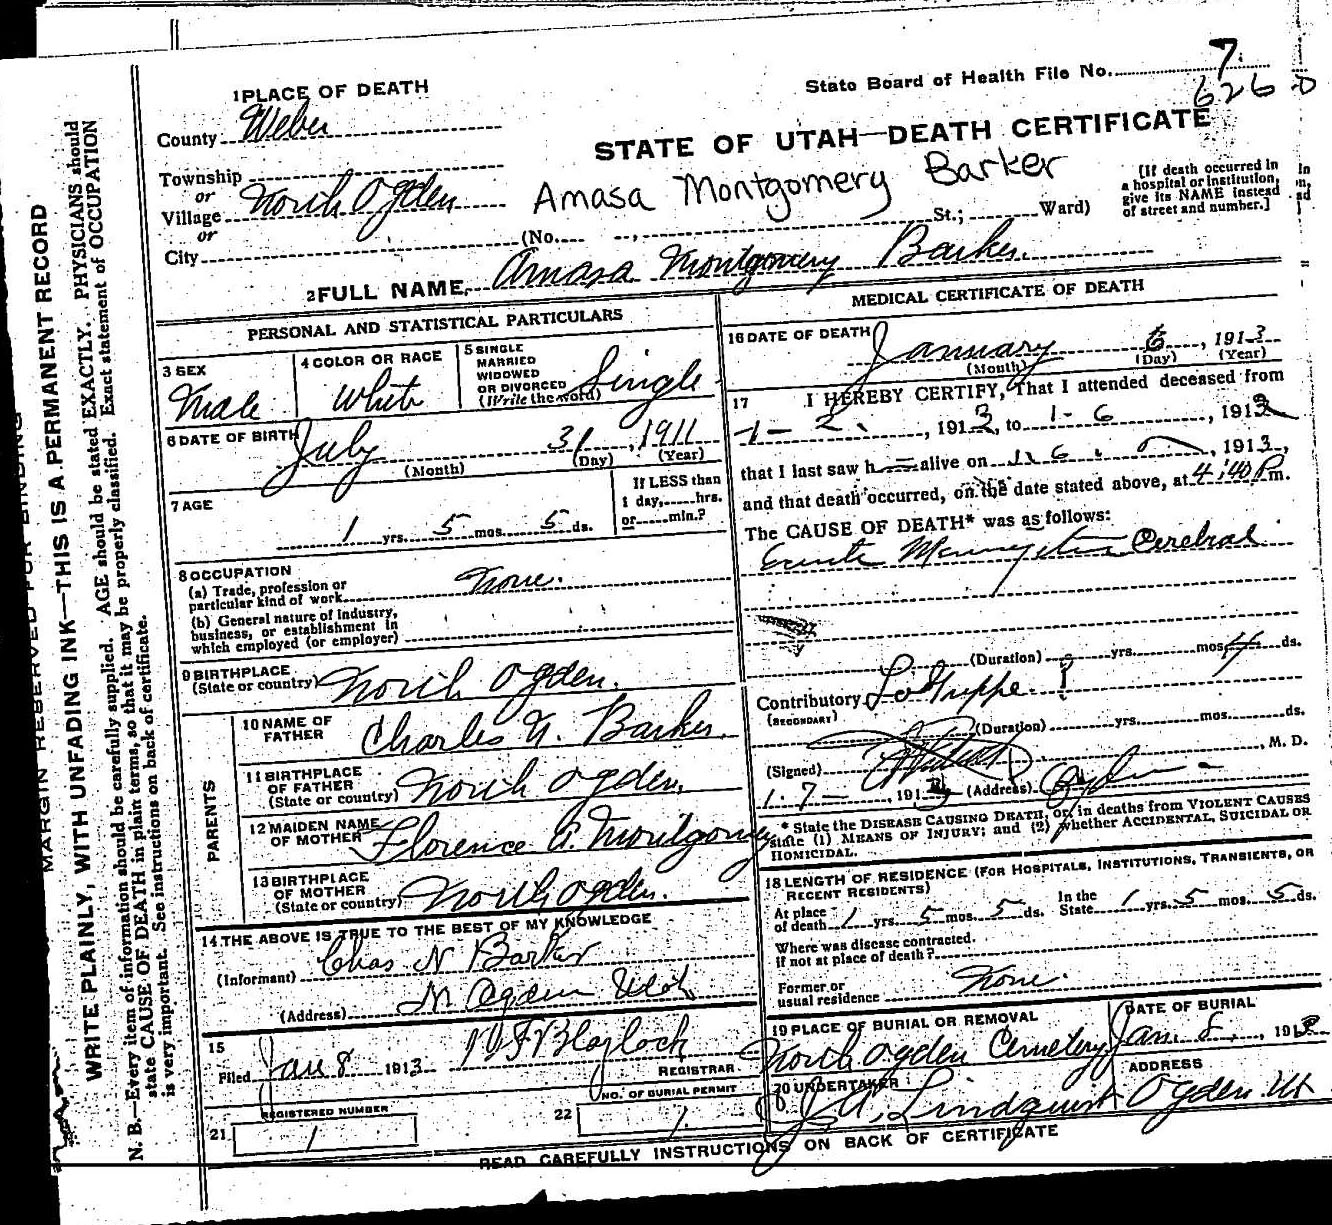 State Board of Health File No. 7
626
1 PLACE OF DEATH
County Weber
STATE OF UTAH—DEATH CERTIFICATE
Township
or
Village North Ogden
or
City
Amasa Montgomery Barker
(No. St.; Ward)
[If death occurred in a hospital or institution, give its NAME instead of street and number.]
2 FULL NAME Amasa Montgomery Barker.
PERSONAL AND STATISTICAL PARTICULARS
3 SEX
Male
4 COLOR OR RACE
White
5 SINGLE
MARRIED
WIDOWED
OR DIVORCED
(Write the word)
Single
6 DATE OF BIRTH
July 31, 1911
(Month) (Day) (Year)
7 AGE
1 yrs. 5 mos. 5 ds.
If LESS than
1 day, hrs.
or min.?
8 OCCUPATION
(a) Trade, profession or
particular kind of work None.
(b) General nature of industry,
business, or establishment in
which employed (or employer)
9 BIRTHPLACE
(State or country) North Ogden.
PARENTS
10 NAME OF
FATHER Charles N. Barker.
11 BIRTHPLACE
OF FATHER
(State or country) North Ogden.
12 MAIDEN NAME
OF MOTHER Florence A. Montgomery
13 BIRTHPLACE
OF MOTHER
(State or country) North Ogden.
14 THE ABOVE IS TRUE TO THE BEST OF MY KNOWLEDGE
(Informant) Chas N Barker
(Address) N Ogden Utah
15
Filed Jan 8 1913 Blaylock
REGISTRAR
REGISTERED NUMBER
21 1
NO. OF BURIAL PERMIT
22 1.
MEDICAL CERTIFICATE OF DEATH
16 DATE OF DEATH
January 6, 1913
(Month) (Day) (Year)
17 I HEREBY CERTIFY, That I attended deceased from
1-2, 1913, to 1-6, 1913
that I last saw h alive on 1 6, 1913,
and that death occurred, on the date stated above, at 4:40 P m.
The CAUSE OF DEATH* was as follows:
Acute Meningitis Cerebral
(Duration) yrs. mos. 4 ds.
Contributory La Grippe ?
(SECONDARY)
(Duration) yrs. mos. ds.
(Signed) , M. D.
1-7-, 1913 (Address) Ogden
* State the DISEASE CAUSING DEATH, or, in deaths from VIOLENT CAUSES
state (1) MEANS OF INJURY; and (2) whether ACCIDENTAL, SUICIDAL OR
HOMICIDAL.
18 LENGTH OF RESIDENCE (FOR HOSPITALS, INSTITUTIONS, TRANSIENTS, OR
RECENT RESIDENTS)
At place of death 1 yrs. 5 mos. 5 ds. In the State 1 yrs. 5 mos. 5 ds.
Where was disease contracted.
if not at place of death?
Former or
usual residence None.
19 PLACE OF BURIAL OR REMOVAL
North Ogden Cemetery
DATE OF BURIAL
Jan. 8, 1913
20 UNDERTAKER
Lindquist
ADDRESS
Ogden Ut
READ CAREFULLY INSTRUCTIONS ON BACK OF CERTIFICATE
MARGIN RESERVED FOR BINDING
WRITE PLAINLY, WITH UNFADING INK—THIS IS A PERMANENT RECORD
N. B.—Every item of information should be carefully supplied. AGE should be stated EXACTLY. PHYSICIANS should
state CAUSE OF DEATH in plain terms, so that it may be properly classified. Exact statement of OCCUPATION
is very important. See instructions on back of certificate.